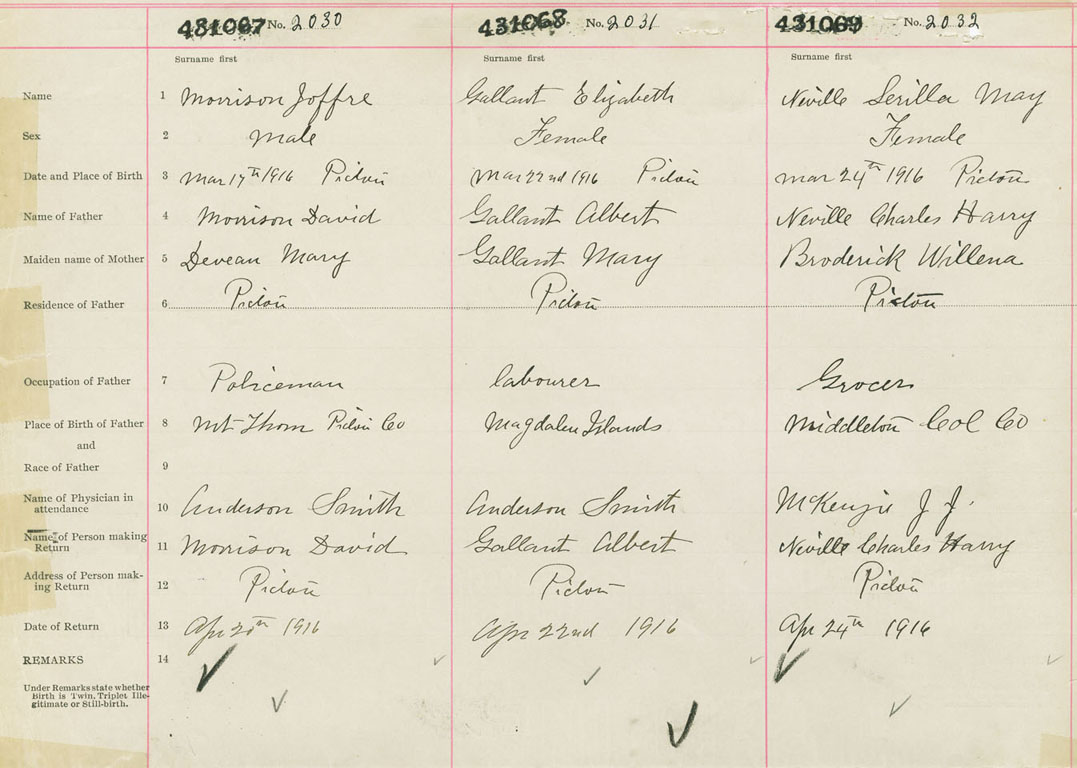 431067 No. 2030 431068 No. 2031 431069 No. 2032
Surname first Surname first Surname first
Name 1 Morrison Joffre Gallant Elizabeth Neville Serilla May
Sex 2 male Female Female
Date and Place of Birth 3 Mar 17th 1916 Pictou Mar 22nd 1916 Pictou Mar 24th 1916 Pictou
Name of Father 4 Morrison David Gallant Albert Neville Charles Harry
Maiden name of Mother 5 Deveau Mary Gallant Mary Broderick Willena
Residence of Father 6 Pictou Pictou Pictou
Occupation of Father 7 Policeman labourer Grocer
Place of Birth of Father 8 Mt Thom Pictou Co Magdalen Islands Middleton Col Co
and
Race of Father 9
Name of Physician in
attendance 10 Anderson Smith Anderson Smith McKenzie J J.
Name of Person making
Return 11 Morrison David Gallant Albert Neville Charles Harry
Address of Person mak-
ing Return 12 Pictou Pictou Pictou
Date of Return 13 Apr 20th 1916 Apr 22nd 1916 Apr 24th 1916
REMARKS 14
Under Remarks state whether
Birth is Twin, Triplet Ille-
gitimate or Still-birth.